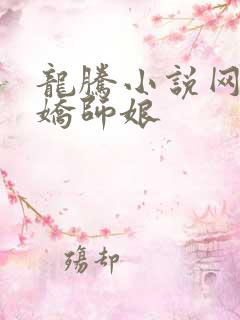 龍騰小说网
嬌師娘
殤却